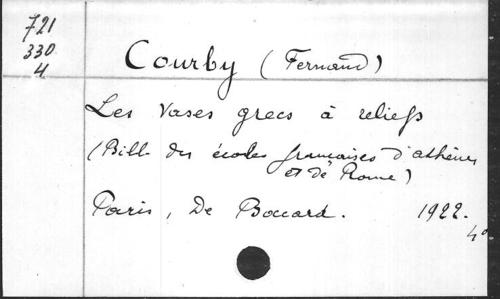 721
330
4
Courby (Fernand)
Les vases grecs à reliefs
(Bibl. des écoles françaises d'athènes
et de Rome)
Paris, De Boccard. 1922.
4°